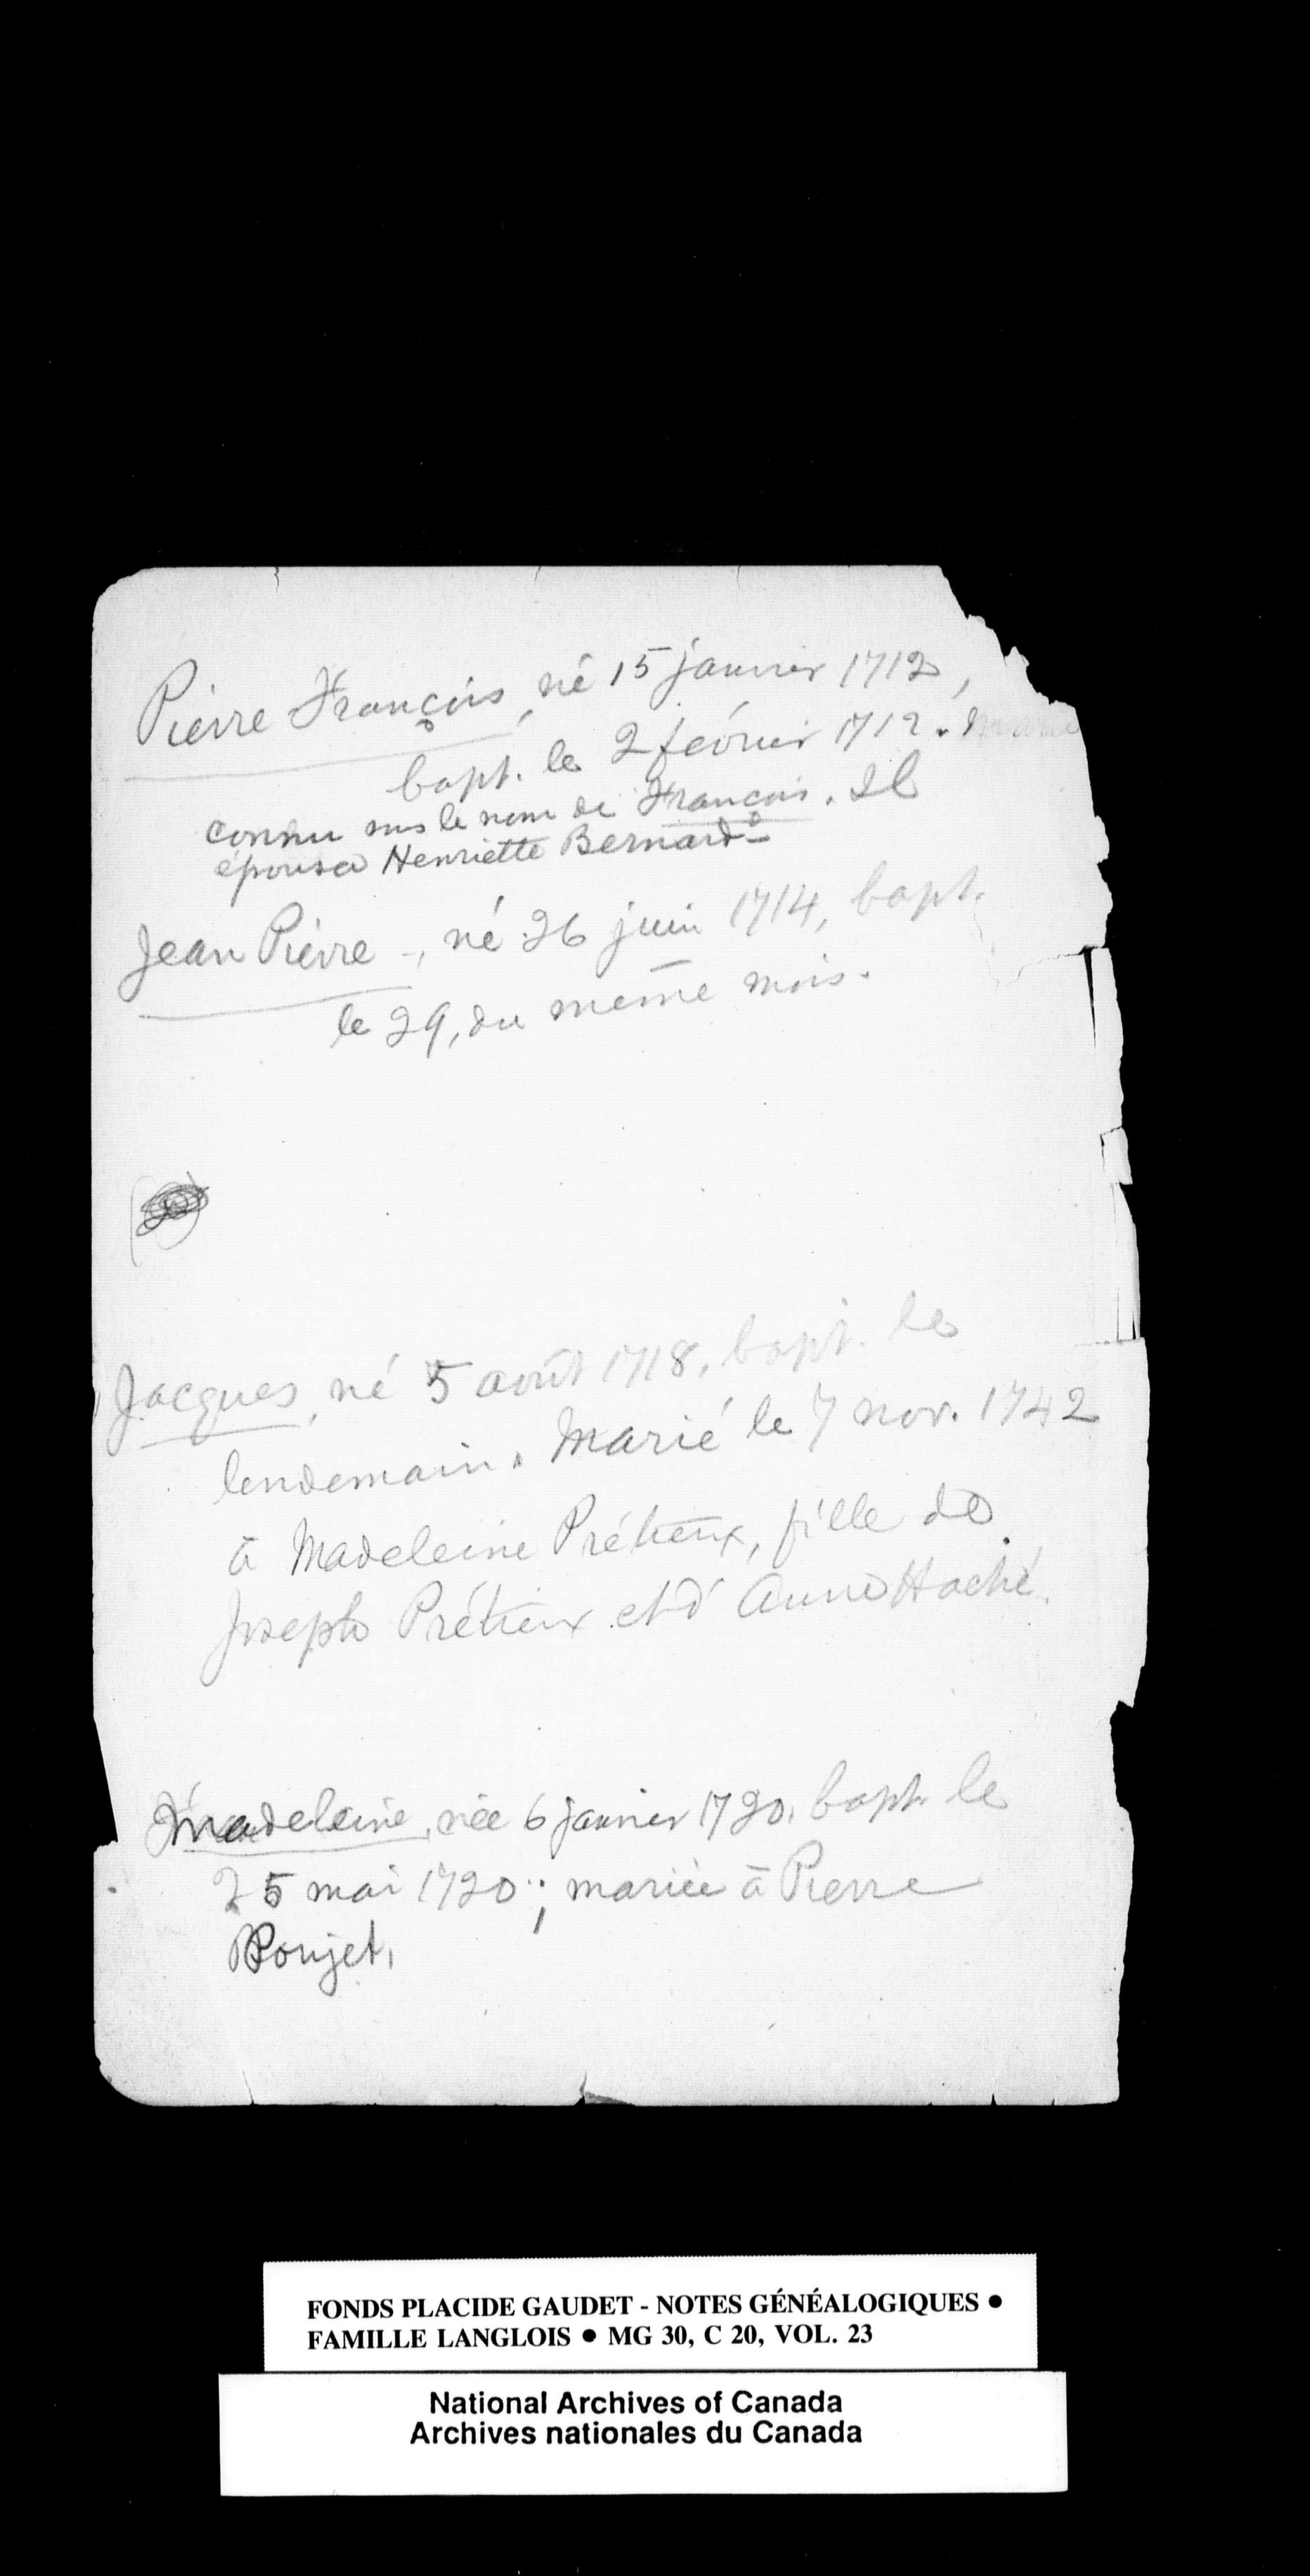 Pierre François, né 15 janvier 1712,
bapt. le 2 février 1712.
connu sus le nom de François. Il
épousa Henriette Bernard
Jean Pierre, né 26 juin 1714, bapt.
le 29, du même mois.
Jacques, né 5 août 1718, bapt. le
lendemain. Marié le 7 nov. 1742
à Madeleine Prétieux, fille de
Joseph Prétieux et d'Anne Haché.
Madeleine, née 6 janvier 1720, bapt. le
25 mai 1720; mariée à Pierre
FONDS PLACIDE GAUDET - NOTES GÉNÉALOGIQUES ●
FAMILLE LANGLOIS ● MG 30, C 20, VOL. 23
National Archives of Canada
Archives nationales du Canada